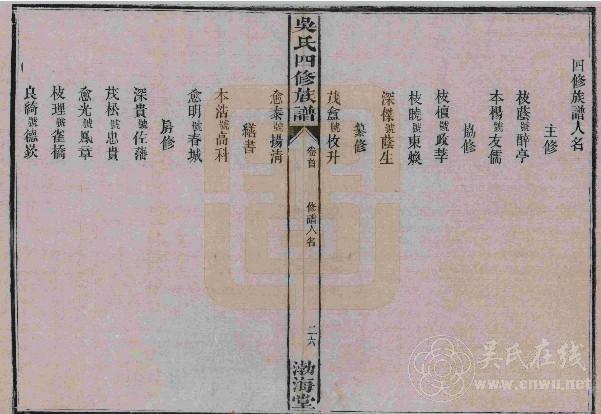 四修族譜人名
主修
枝蔭號醉亭
本楊號友儒
協修
枝檀號政莘
枝曉號東嫉
深傑號蔭生
纂修
茂盒號枚升
吳氏四修族譜
卷首
修譜人名
二六
渤海堂
愈泰號揚清
繕書
本浩號高科
愈明號春城
房修
深貴號佐藩
茂松號忠貴
愈光號鳳章
枝理號雀橋
良綺號德欽
吴氏在线
www.cnwu.net